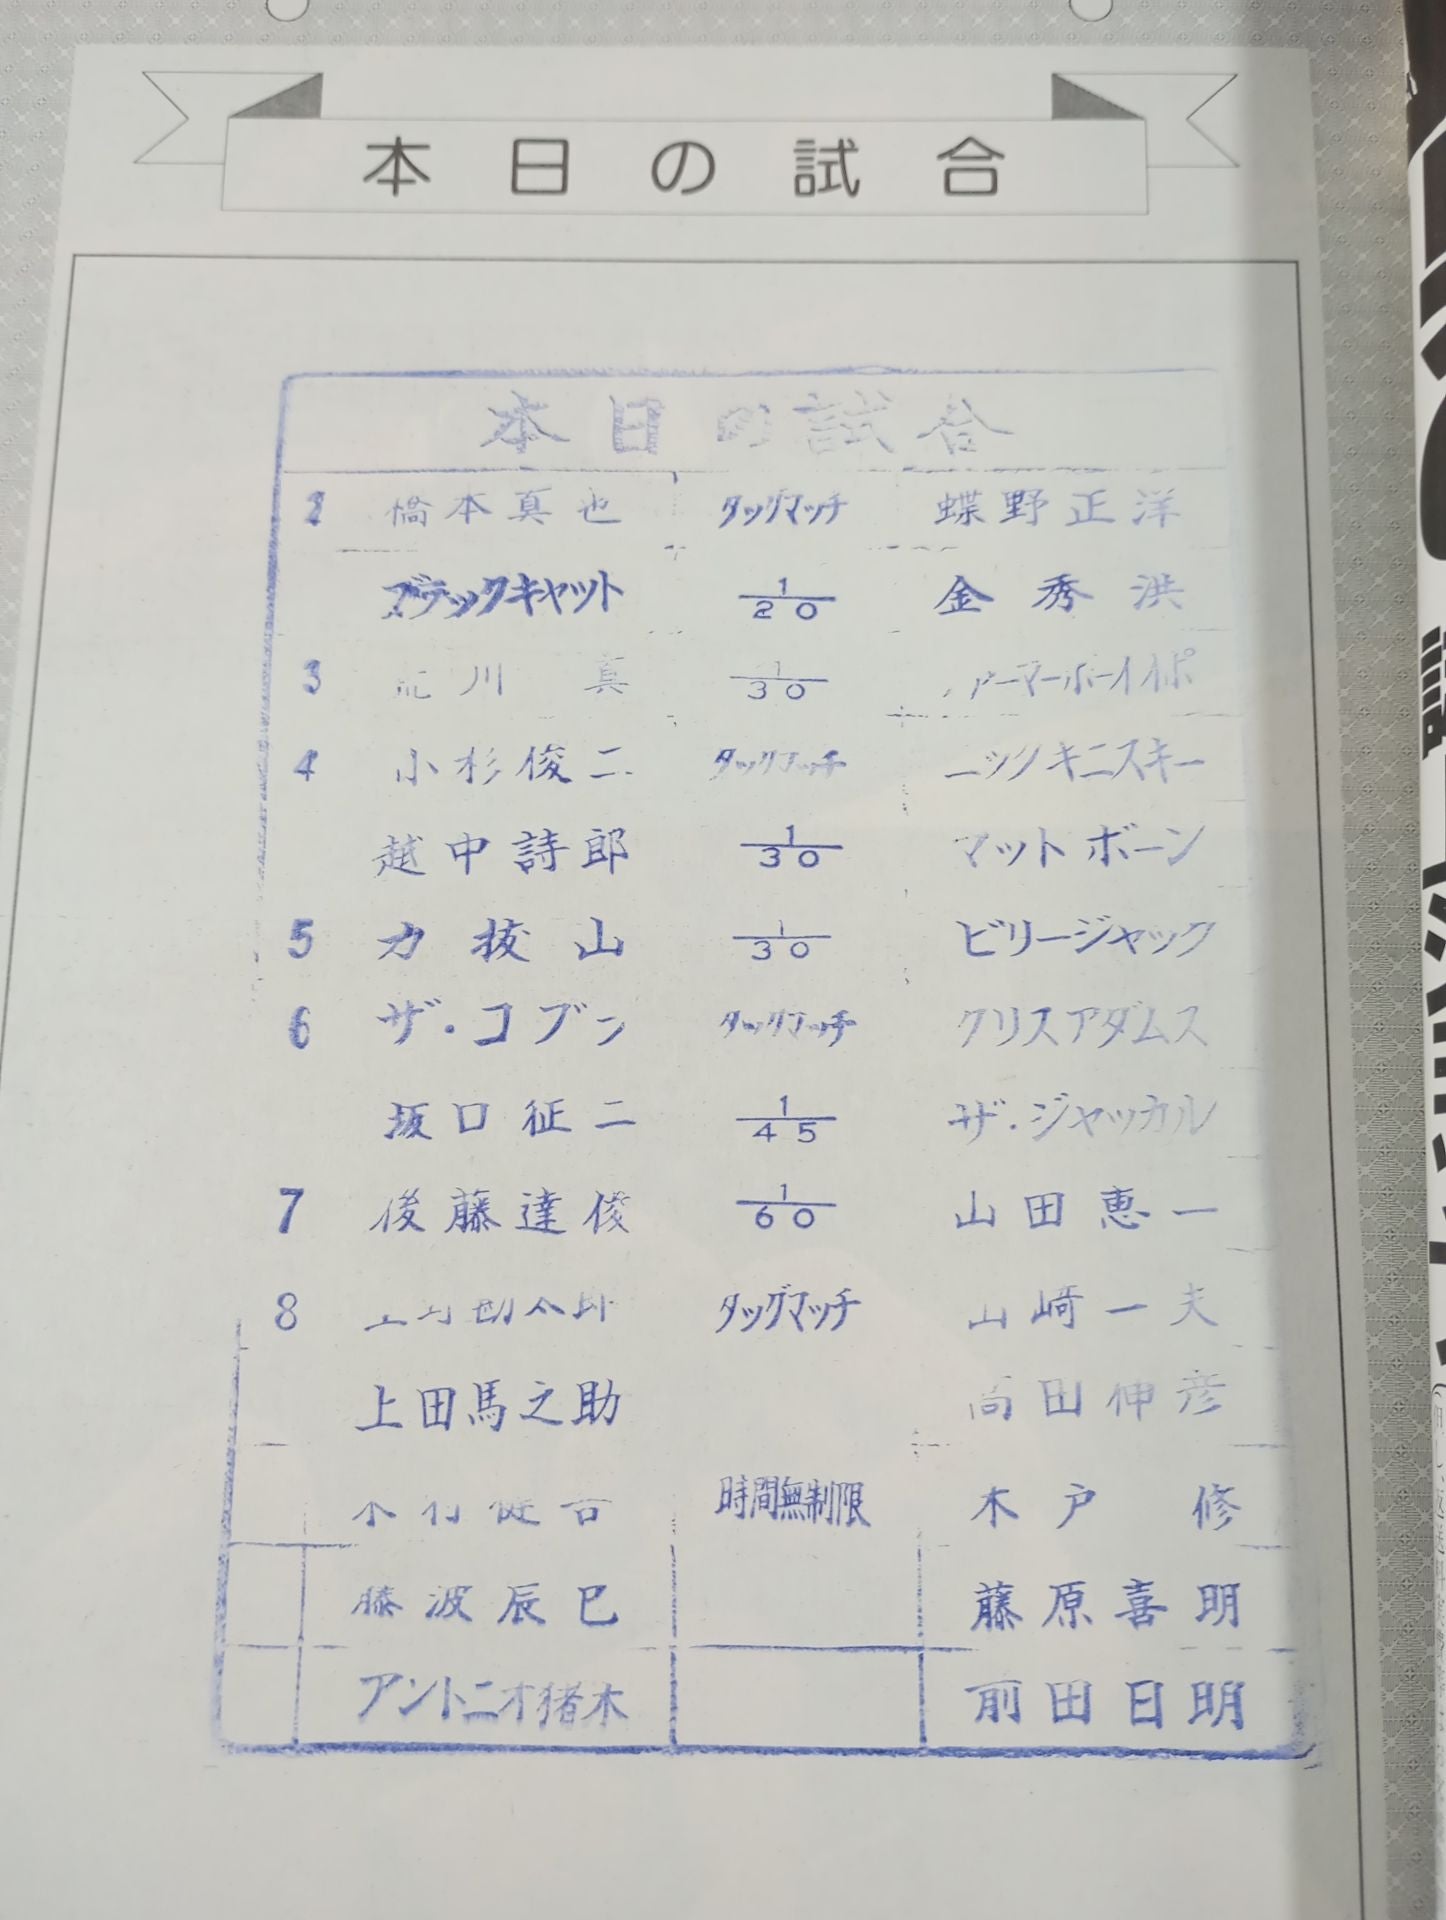 本日の試合
本日の試合
2 橋本真也 タッグマッチ 蝶野正洋
ブラックキャット 1/20 金秀洪
3 荒川真 1/30
4 小杉俊二 タッグマッチ ニッキニスキー
越中詩郎 1/30 マットボーン
5 力抜山 1/30 ビリージャック
6 ザ・コブン タッグマッチ クリスアダムス
坂口征二 1/45 ザ・ジャッカル
7 後藤達俊 1/60 山田恵一
8 上野勘太郎 タッグマッチ 山崎一夫
上田馬之助 高田伸彦
木村健吾 時間無制限 木戸修
藤波辰巳 藤原喜明
アントニオ猪木 前田日明